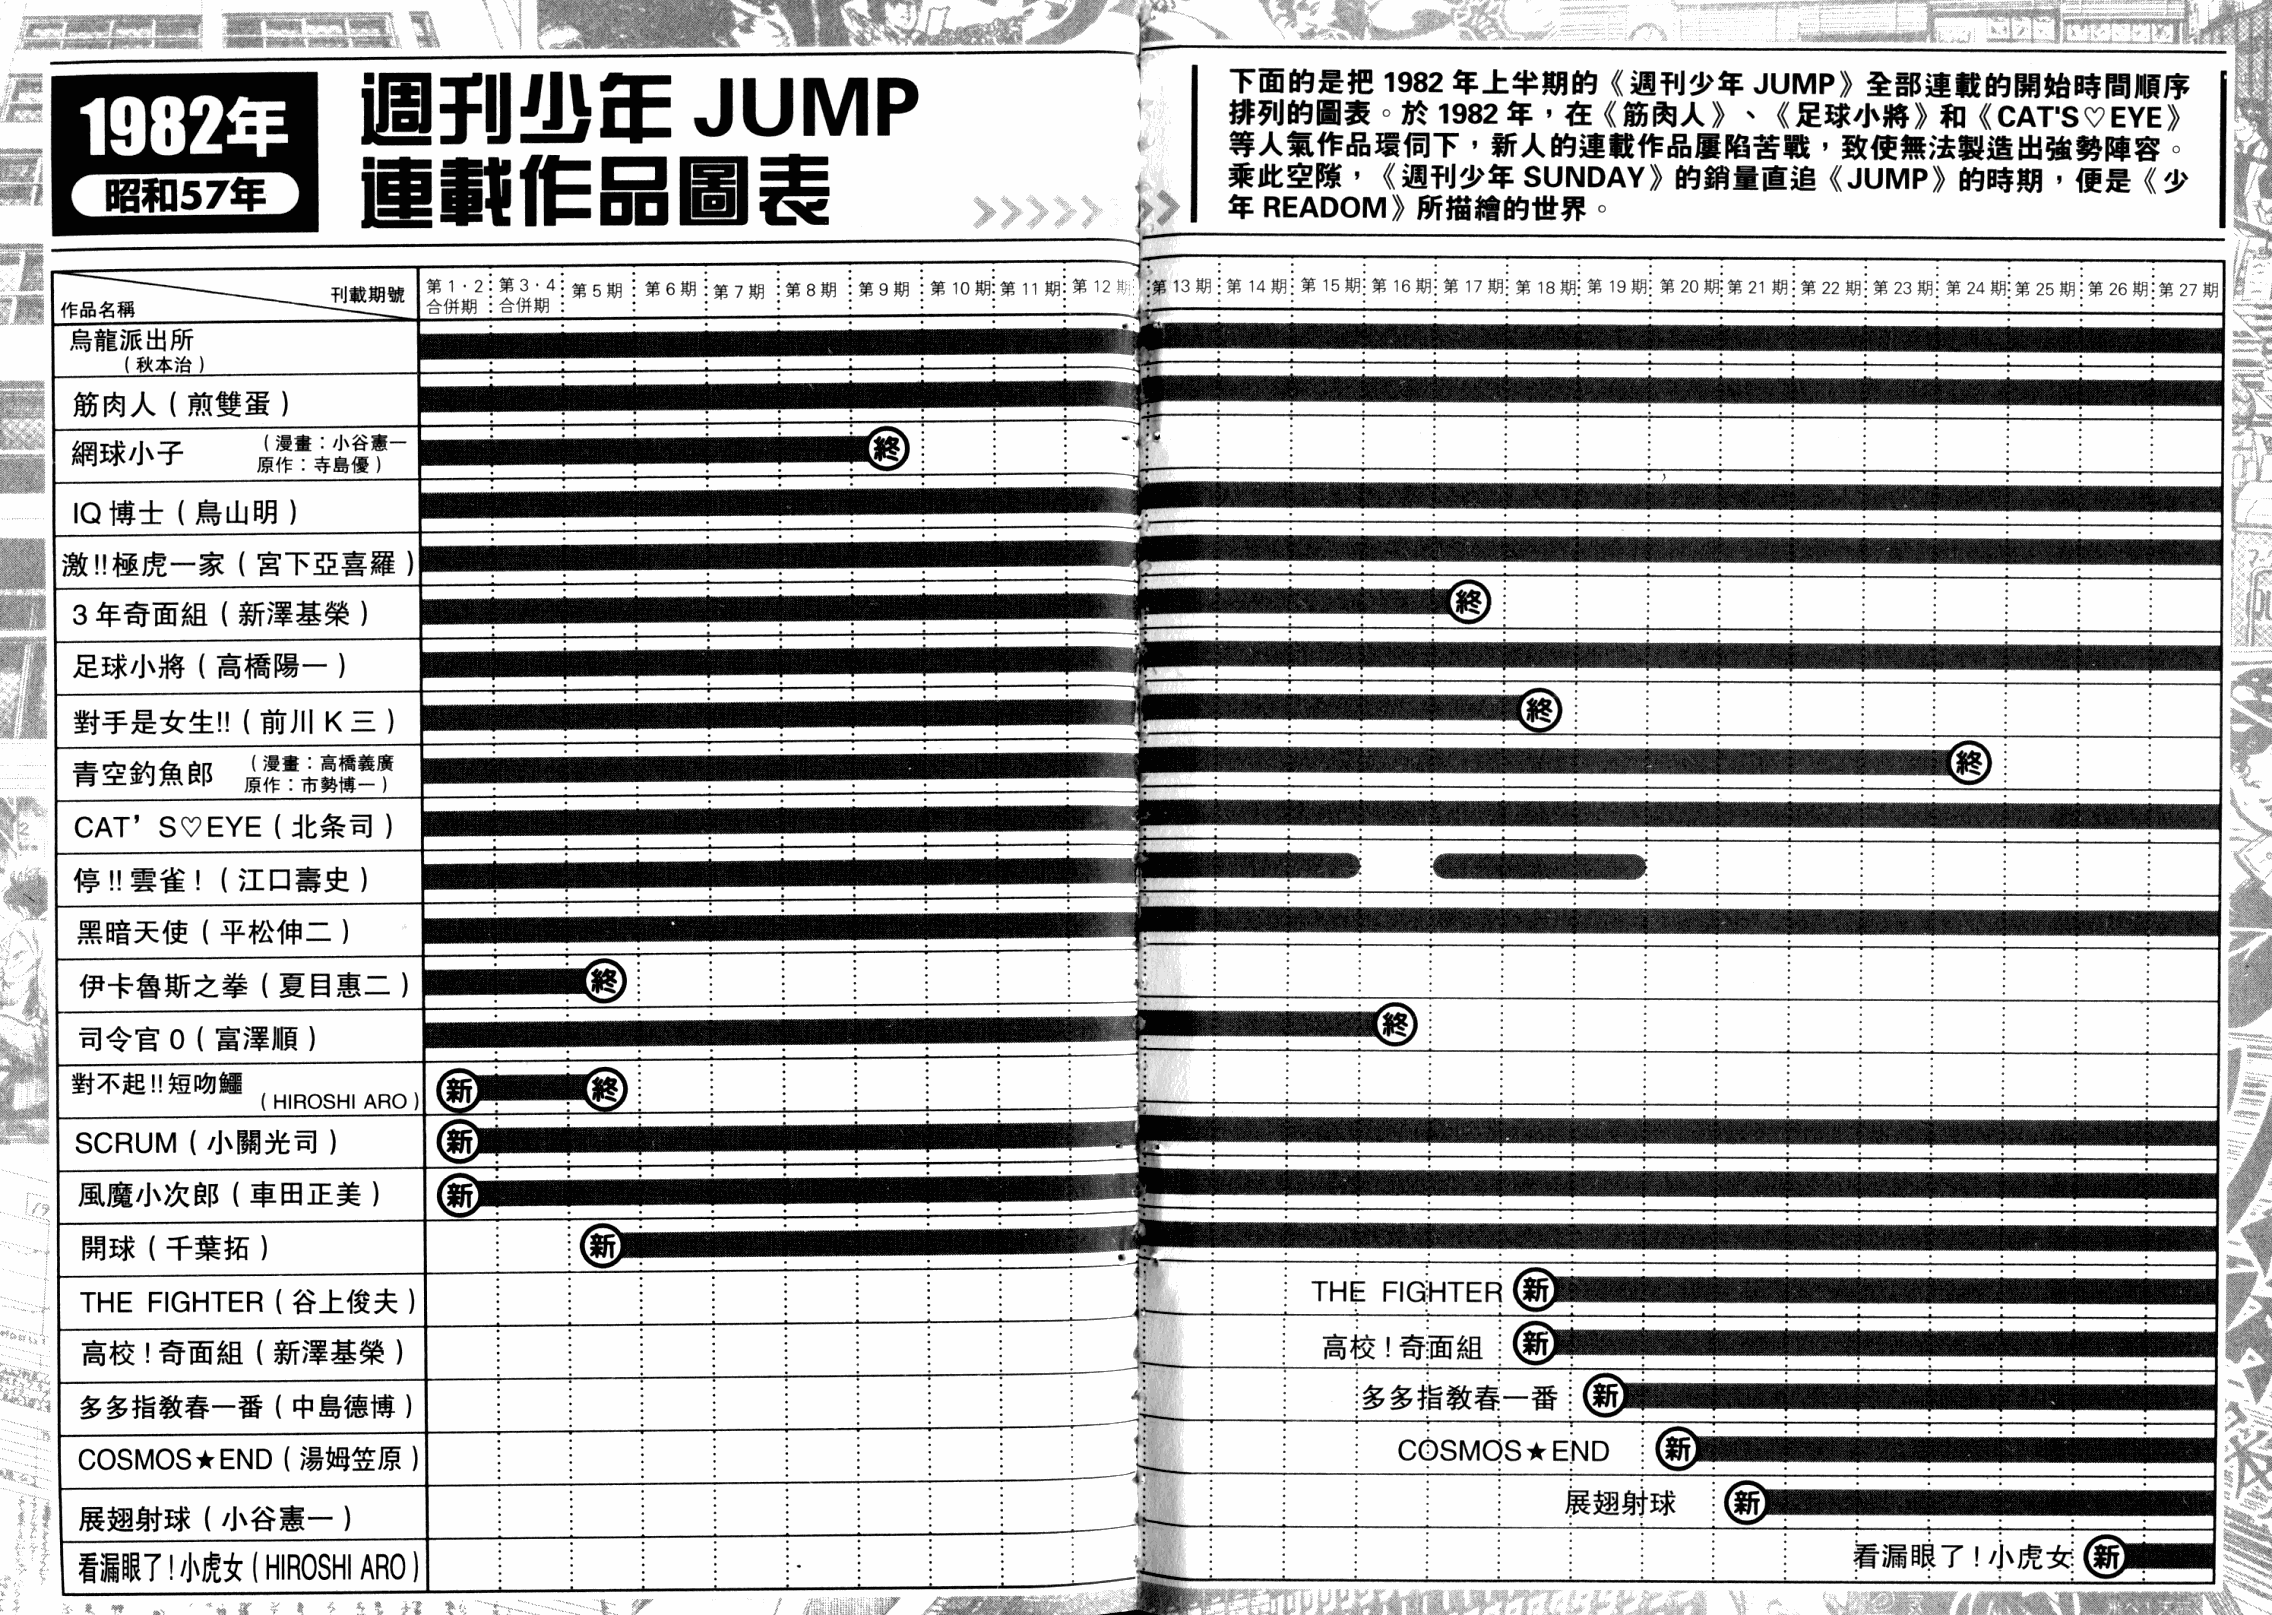 1982年
昭和57年
週刊少年 JUMP
連載作品圖表
下面的是把 1982 年上半期的《週刊少年 JUMP》全部連載的開始時間順序
排列的圖表。於 1982 年，在《筋肉人》、《足球小將》和《CAT'S♡EYE》
等人氣作品環伺下，新人的連載作品屢陷苦戰，致使無法製造出強勢陣容。
乘此空隙，《週刊少年 SUNDAY》的銷量直追《JUMP》的時期，便是《少
年 READOM》所描繪的世界。
作品名稱
刊載期號
第 1・2 合併期
第 3・4 合併期
第 5 期
第 6 期
第 7 期
第 8 期
第 9 期
第 10 期
第 11 期
第 12 期
第 13 期
第 14 期
第 15 期
第 16 期
第 17 期
第 18 期
第 19 期
第 20 期
第 21 期
第 22 期
第 23 期
第 24 期
第 25 期
第 26 期
第 27 期
烏龍派出所
（秋本治）
筋肉人（煎雙蛋）
網球小子
（漫畫：小谷憲一
原作：寺島優）
終
IQ 博士（鳥山明）
激!!極虎一家（宮下亞喜羅）
3 年奇面組（新澤基榮）
終
足球小將（高橋陽一）
對手是女生!!（前川 K 三）
終
青空釣魚郎
（漫畫：高橋義廣
原作：市勢博一）
終
CAT’S♡EYE（北条司）
停!!雲雀！（江口壽史）
黑暗天使（平松伸二）
伊卡魯斯之拳（夏目惠二）
終
司令官 0（富澤順）
終
對不起!!短吻鱷
（HIROSHI ARO）
新
終
SCRUM（小關光司）
新
風魔小次郎（車田正美）
新
開球（千葉拓）
新
THE FIGHTER（谷上俊夫）
THE FIGHTER
新
高校！奇面組（新澤基榮）
高校！奇面組
新
多多指教春一番（中島德博）
多多指教春一番
新
COSMOS★END（湯姆笠原）
COSMOS★END
新
展翅射球（小谷憲一）
展翅射球
新
看漏眼了！小虎女（HIROSHI ARO）
看漏眼了！小虎女
新